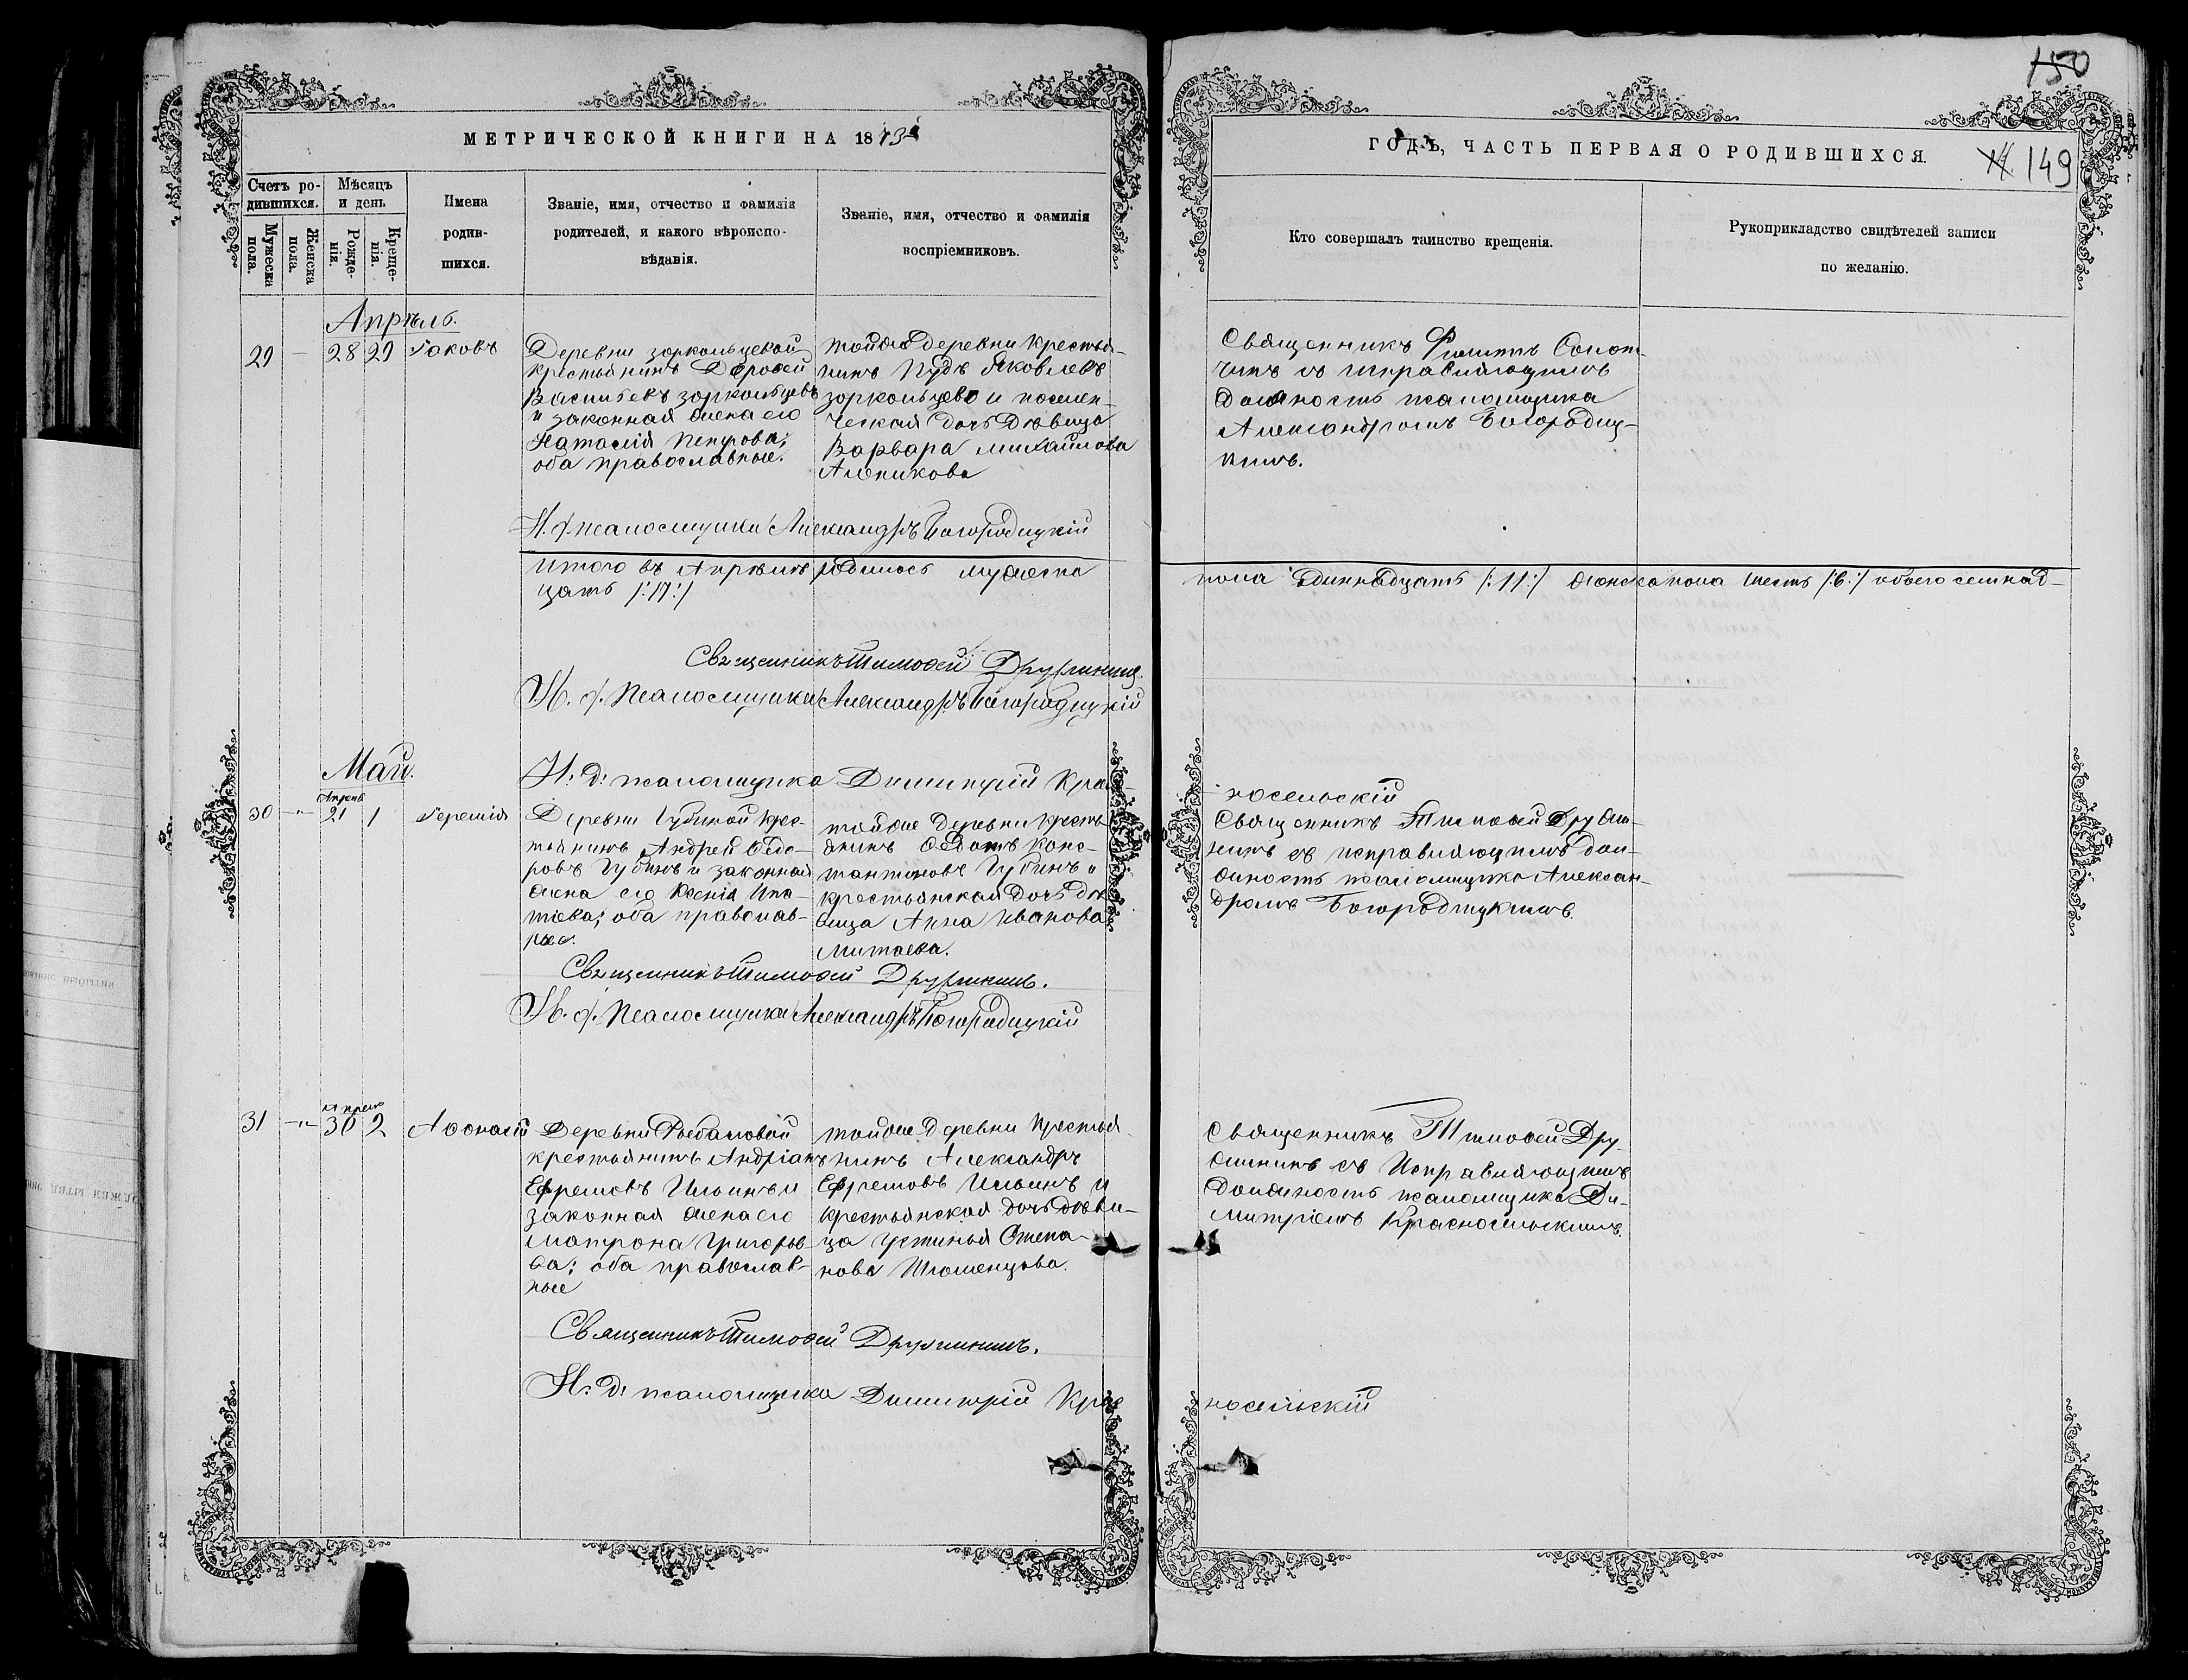 МЕТРИЧЕСКОЙ КНИГИ НА 1873й
Счетъ ро-
дившихся.
Мѣсяцъ
и день
Мужеска
пола.
Женска
пола.
Рожде-
нія.
Креще-
нія.
Имена
родив-
шихся.
Званіе, имя, отчество и фамилія
родителей, и какого вѣроиспо-
вѣданія.
Званіе, имя, отчество и фамилія
воспріемниковъ.
Апрѣль.
29 — 28 29 Іаковъ
Деревни зоркольцевой
крестьянинъ Дороѳей
Васильевъ зоркольцевъ
и законная жена его
Наталія Петрова;
оба православные.
тойже деревни крестья-
нинъ Пудъ Яковлевъ
зоркольцево и поселен-
ческая дочь дѣвица
Варвара михайлова
Аленикова
И. д. псаломщика Александръ Богородицкій
Итого въ Апрѣлѣ родилось мужеска
цать /:17:/
Священникъ Тимоѳей Дружининъ.
И. д. Псаломщика Александръ Богородицкій
Май.
И. д: псаломщика Димитрій Крас-
30 -"- Апрель 21 1 Іеремія
Деревни Губиной крес-
тьянинъ Андрей Ѳедо-
ровъ Губинъ и законная
жена его Ксенія Ипа-
тіева; оба православ-
ные.
тойже деревни кресть-
янинъ Ѳедотъ Конс-
тантиновъ Губинъ и
крестьянская дочь дѣ-
вица Анна Иванова
Митаева.
Священникъ Тимоѳей Дружининъ.
И. д. Псаломщика Александръ Богородицкій
31 -"- Апрель 30 2 Аѳонасій
Деревни Рыбаловой
крестьянинъ Андріанъ
Ефремовъ Ильинъ и
законная жена его
Матрона Григорьев-
ва; оба православ-
ные
тойже деревни крестья-
нинъ Александръ
Ефремовъ Ильинъ и
крестьянская дочь дѣви-
ца Устинья Степа-
нова
Священникъ Тимоѳей Дружининъ.
И: д: псаломщика Димитрій Крас
150
ГОДЪ, ЧАСТЬ ПЕРВАЯ О РОДИВШИХСЯ.
149
Кто совершалъ таинство крещенія.
Рукоприкладство свидѣтелей записи
по желанію.
Священникъ Филиппъ Солот-
чинъ съ исправляющимъ
должность псаломщика
Александромъ Богородиц-
кимъ.
пола одиннадцать /:11:/ женска пола шесть /:6:/ обоего семнад-
носельскій
Священникъ Тимоѳей Дружи-
нинъ съ исправляющимъ дол-
жность псаломщика Алексан-
дромъ Богородицкимъ.
Священникъ Тимоѳей Дру-
жининъ съ Исправляющимъ
должность псаломщика Ди-
митріемъ Красносельскимъ.
носельскій